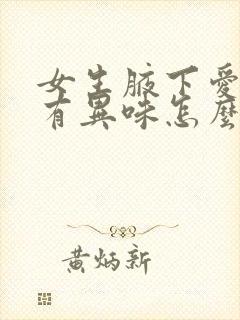 女生腋下愛
有異味怎麼
黃炳新